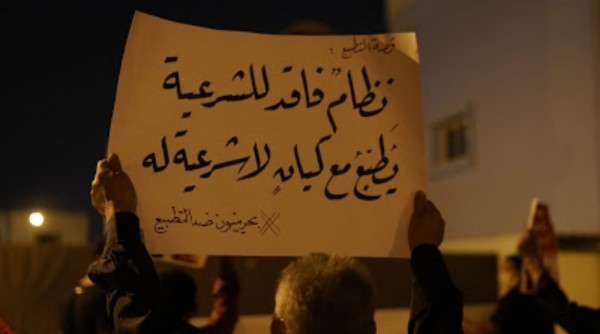 قصة التطبيع :
نظامٌ فاقد للشرعية
يُطبّع مع كيانٍ لا شرعية له
بحرينيون ضد التطبيع